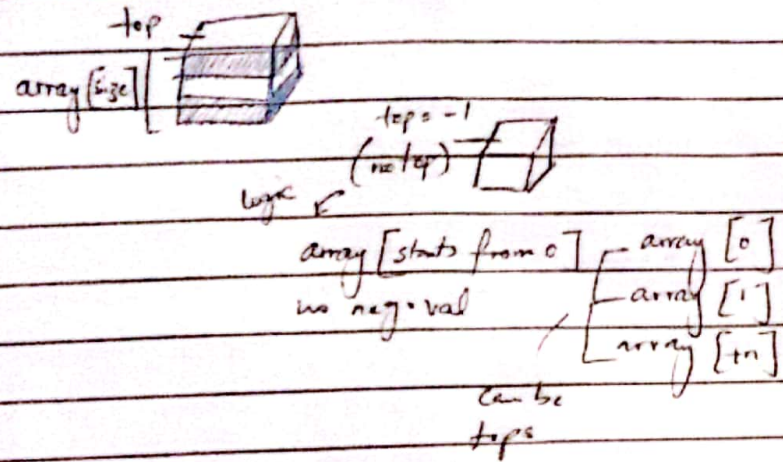 top
array [size]
top = -1
(no top)
logic
array [starts from 0]
no neg. val
array [0]
array [1]
array [+n]
can be
tops